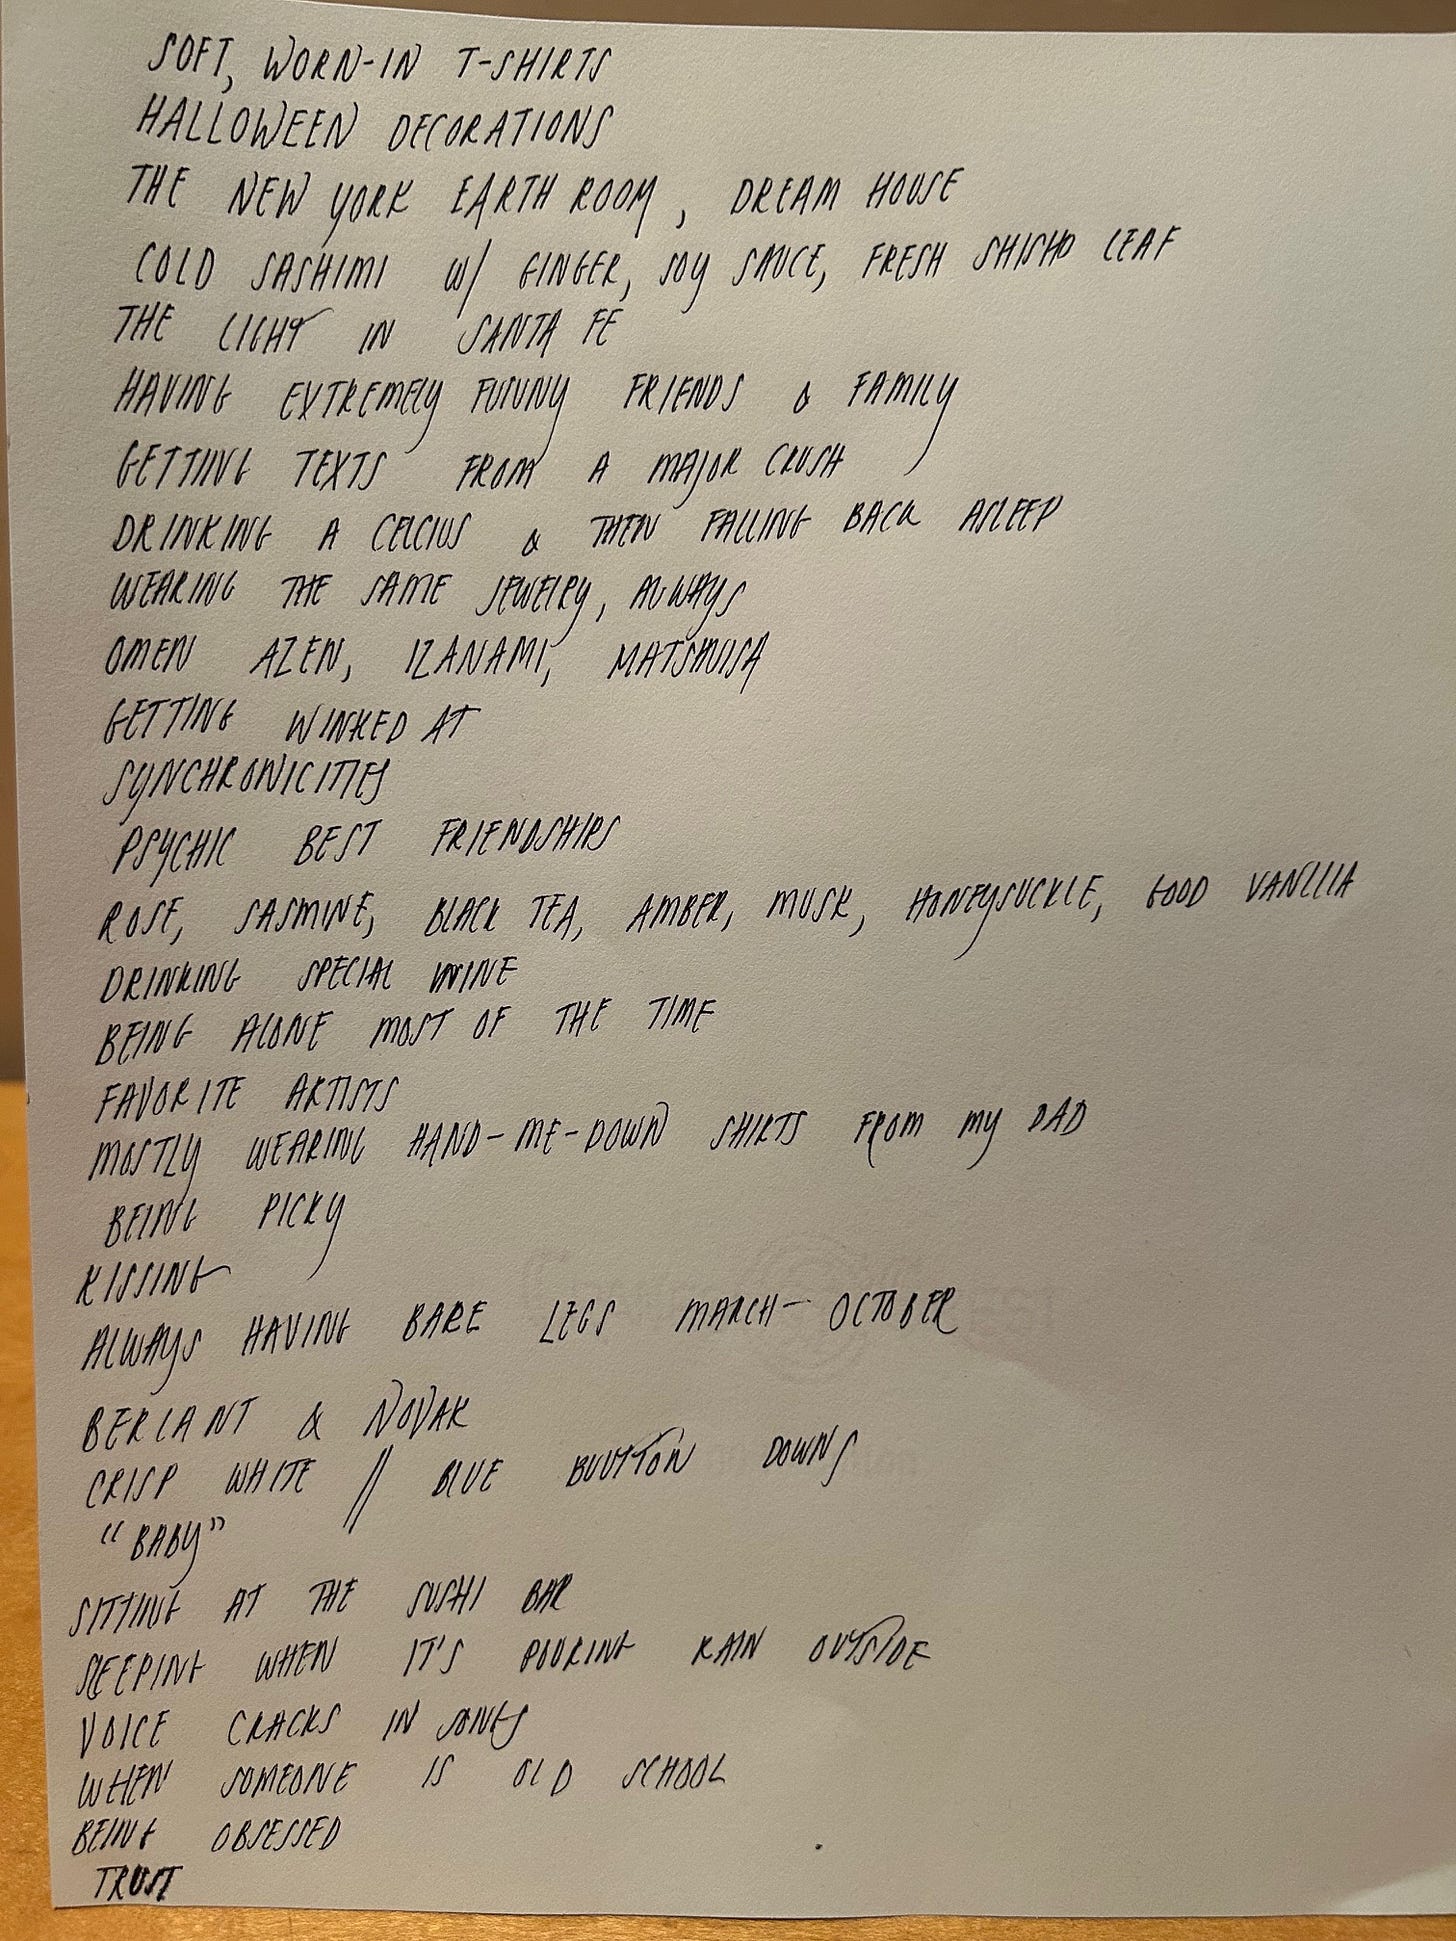 SOFT, WORN-IN T-SHIRTS
HALLOWEEN DECORATIONS
THE NEW YORK EARTH ROOM, DREAM HOUSE
COLD SASHIMI W/ GINGER, SOY SAUCE, FRESH SHISHO LEAF
THE LIGHT IN SANTA FE
HAVING EXTREMELY FUNNY FRIENDS & FAMILY
GETTING TEXTS FROM A MAJOR CRUSH
DRINKING A CELCIUS & THEN FALLING BACK ASLEEP
WEARING THE SAME JEWELRY, ALWAYS
OMEN AZEN, IZANAMI, MATSHUISA
GETTING WINKED AT
SYNCHRONICITIES
PSYCHIC BEST FRIENDSHIPS
ROSE, JASMINE, BLACK TEA, AMBER, MUSK, HONEYSUCKLE, GOOD VANILLA
DRINKING SPECIAL WINE
BEING ALONE MOST OF THE TIME
FAVORITE ARTISTS
MOSTLY WEARING HAND-ME-DOWN SHIRTS FROM MY DAD
BEING PICKY
KISSING
ALWAYS HAVING BARE LEGS MARCH-OCTOBER
BERLANT & NOVAK
CRISP WHITE // BLUE BUUTTON DOWNS
"BABY"
SITTING AT THE SUSHI BAR
SLEEPING WHEN IT'S POURING RAIN OUTSIDE
VOICE CRACKS IN SONGS
WHEN SOMEONE IS OLD SCHOOL
BEING OBSESSED
TRUST